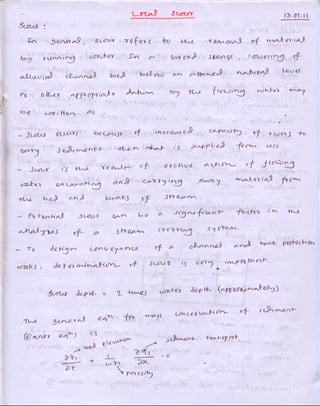 Local Scour
13.07.11
Scour :
In general, scour refers to the removal of material
by running water. In a broad sense, lowering of
alluvial channel bed below an assumed natural level
or other appropriate datum by the flowing water may
be written as
- Scour occurs because of increased capacity of rivers to
carry sediments then what is supplied from u/s
- Scour is the result of erosive action of flowing
water excavating and carrying away material from
the bed and banks of stream.
- Potential scour can be a significant factor in the
analysis of a stream crossing system.
- To design conveyance of a channel and bank protection
works, determination of scour is very important.
Scour depth = 2 times water depth (approximately)
The general eqn for mass conservation of sediment
(Exner eqn) is
bed elevation
sediment transport
∂Z / ∂t + 1 / 1-λ ∂qs / ∂x = 0
porosity